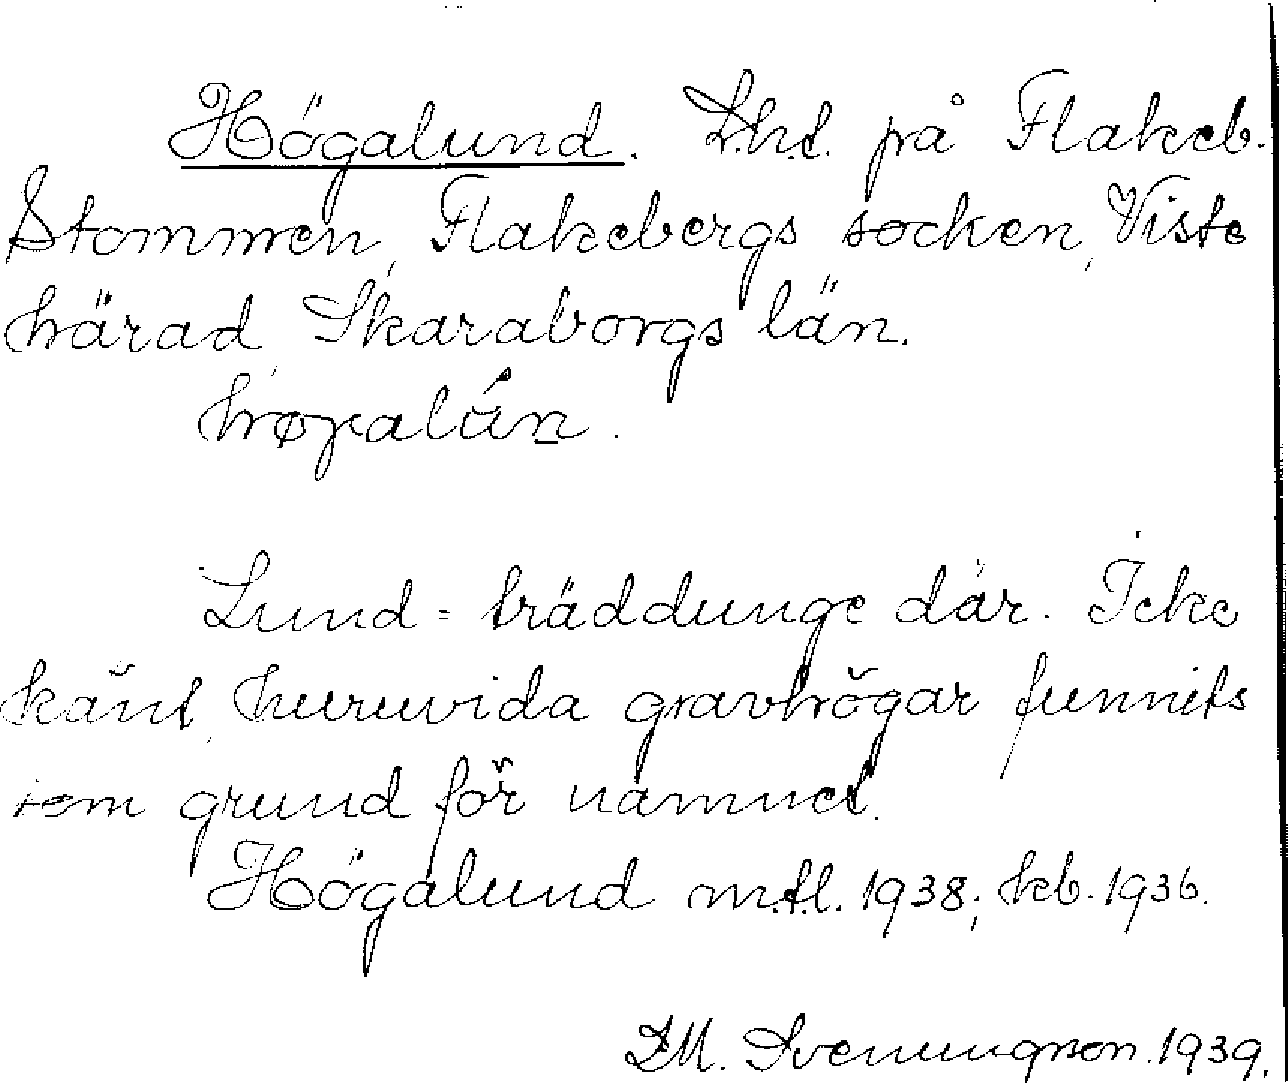 Högalund. Lht. på Flakeb.
Stommen, Flakebergs socken, Viste
härad, Skaraborgs län.
Lund = träddunge där. Icke
känt, huruvida gravhögar funnits
som grund för namnet.
Högalund mtl. 1938; kb. 1936.
D.M. Svenungson. 1939.